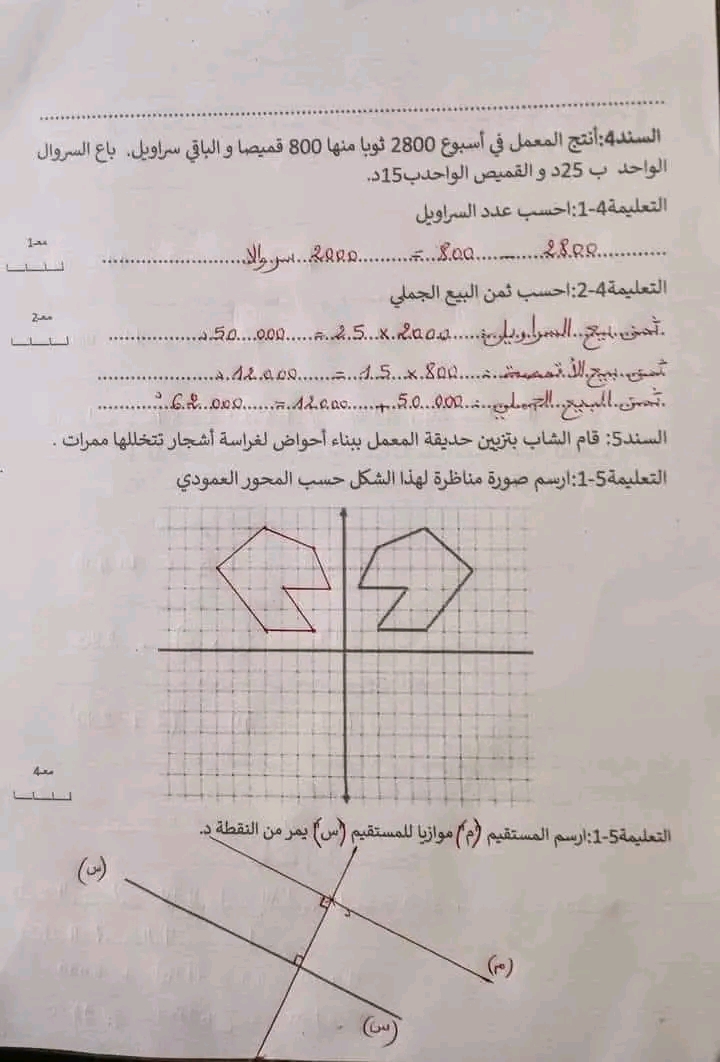 السند4:أنتج المعمل في أسبوع 2800 ثوبا منها 800 قميصا و الباقي سراويل. باع السروال
الواحد ب 25د و القميص الواحدب15د.
التعليمة4-1:احسب عدد السراويل
معـ1
2800 - 800 = 2000 سروالا
التعليمة4-2:احسب ثمن البيع الجملي
معـ2
ثمن بيع السراويل: 2000 × 25 = 50 000 د
ثمن بيع الأقمصة: 800 × 15 = 12 000 د
ثمن البيع الجملي: 50 000 + 12000 = 62 000 د
السند5: قام الشاب بتزيين حديقة المعمل ببناء أحواض لغراسة أشجار تتخللها ممرات .
التعليمة5-1:ارسم صورة مناظرة لهذا الشكل حسب المحور العمودي
معـ4
التعليمة5-1:ارسم المستقيم (م) موازيا للمستقيم (س) يمر من النقطة د.
(س)
د
(م)
(س)